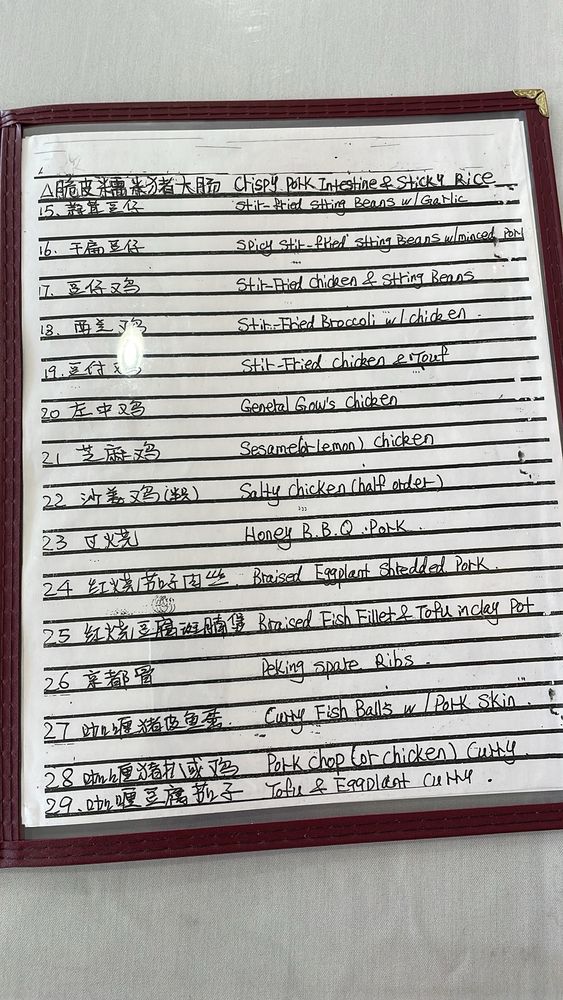 △脆皮糯米猪大肠 Crispy Pork Intestine & Sticky Rice
15. 蒜茸豆仔 Stir-fried String Beans w/ Garlic
16. 干扁豆仔 Spicy Stir-fried String Beans w/minced Pork
17. 豆仔鸡 Stir-Fried chicken & String Beans
18. 西兰鸡 Stir-Fried Broccoli w/ chicken.
19. 豆付鸡 Stir-Fried chicken & Touf
20 左中鸡 General Gow's chicken
21 芝麻鸡 Sesame(or lemon) chicken
22 沙姜鸡 Salty chicken (half order)
23 叉烧 Honey B.B.Q. Pork.
24 红烧茄子肉丝. Braised Eggplant Shredded Pork.
25 红烧豆腐斑腩煲 Braised Fish Fillet & Tofu in clay Pot.
26 京都骨 Peking Spare Ribs.
27 咖喱猪皮鱼蛋. Curry Fish Balls w/ Pork Skin.
28 咖喱猪扒或鸡 Pork chop (or chicken) Curry.
29. 咖喱豆腐茄子 Tofu & Eggplant Curry.